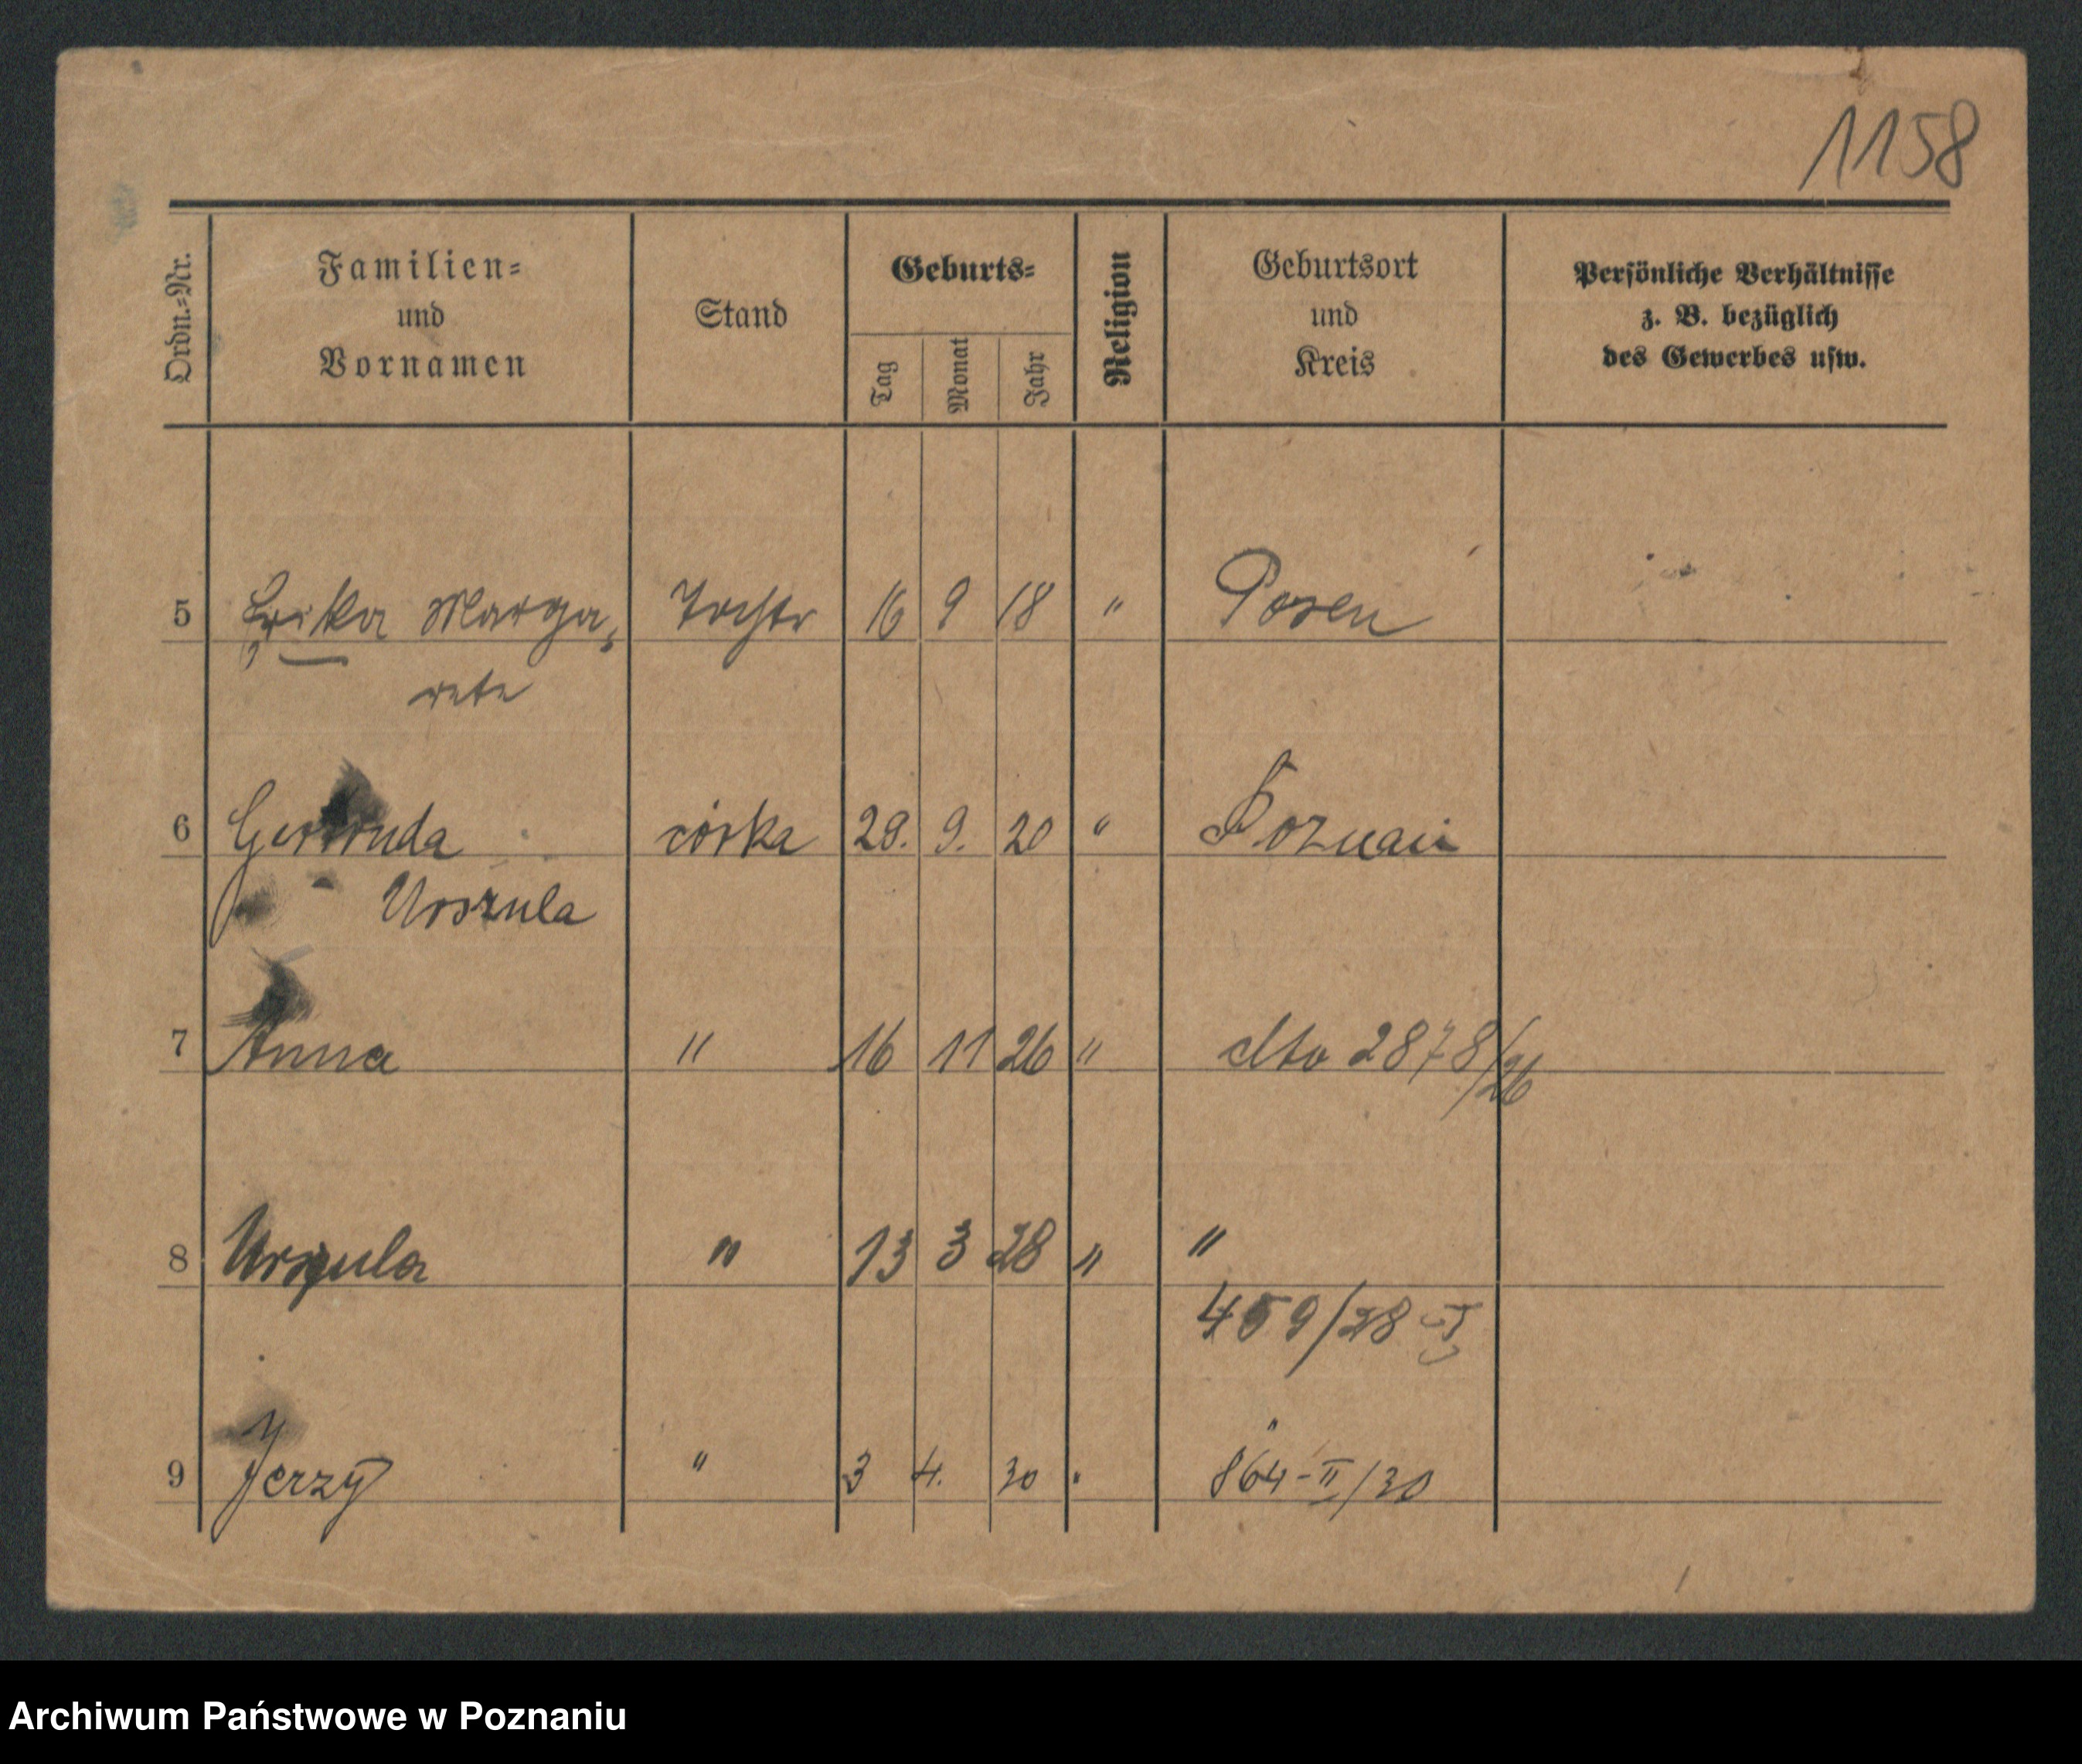 1158
Ordn.=Nr.
Familien=
und
Vornamen
Stand
Geburts=
Tag
Monat
Jahr
Religion
Geburtsort
und
Kreis
Persönliche Verhältnisse
z. B. bezüglich
des Gewerbes usw.
5 Erika Marga= Tochter 16 9 18 " Posen
rete
6 Gertruda córka 28. 9. 20 " Poznań
Urszula
7 Anna " 16 11 26 " dto 2878/26
8 Urszula " 13 3 28 " "
459/28
9 Jerzy " 3 4. 30 " "
864-II/30
Archiwum Państwowe w Poznaniu